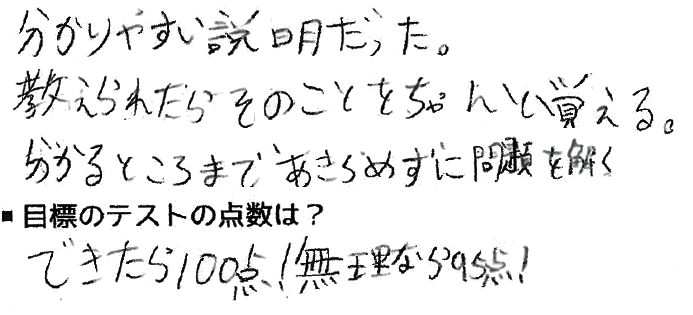 分かりやすい説明だった。
教えられたらそのことをちゃんと覚える。
分かるところまであきらめずに問題を解く
■ 目標のテストの点数は?
できたら100点!無理なら95点!